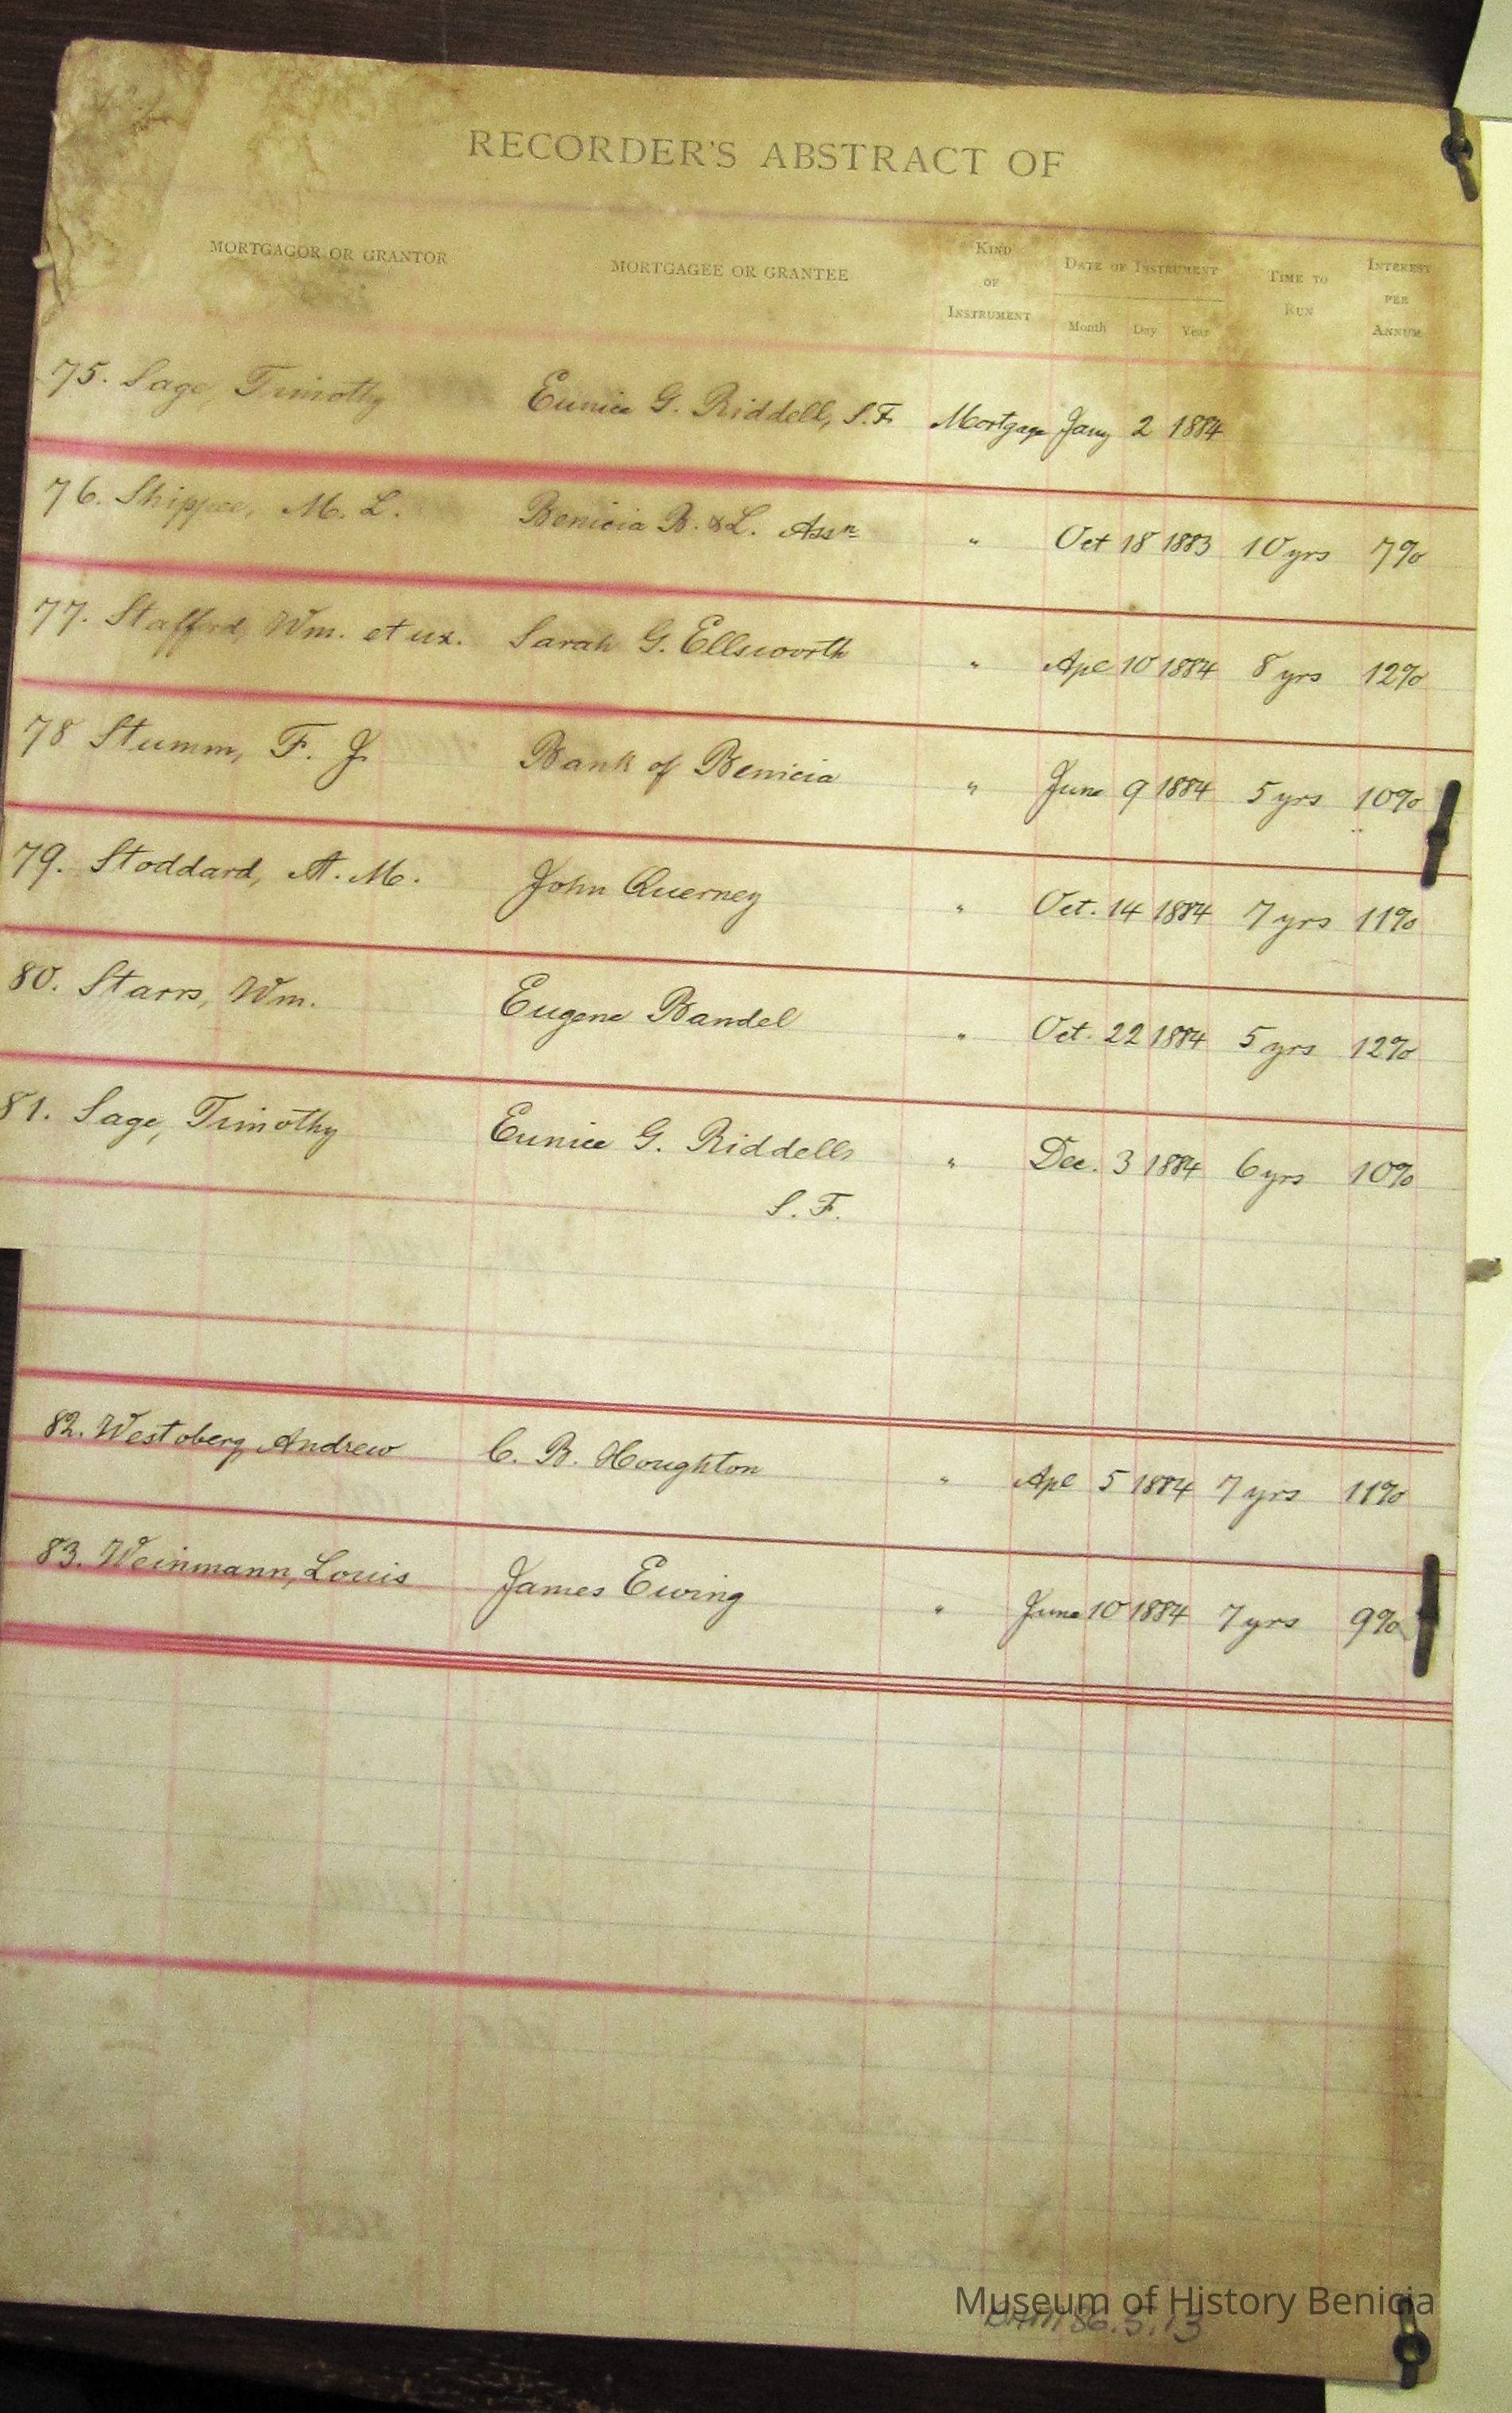 RECORDER'S ABSTRACT OF
MORTGAGOR OR GRANTOR MORTGAGEE OR GRANTEE KIND OF INSTRUMENT DATE OF INSTRUMENT Month Day Year TIME TO RUN INTEREST PER ANNUM
75. Sage, Timothy Eunice G. Riddell, S.F. Mortgage Jany 2 1884
76. Shippee, M. L. Benicia B. & L. Assn " Oct 18 1883 10 yrs 7%
77. Stafford, Wm. et ux. Sarah G. Ellsworth " Apl 10 1884 8 yrs 12%
78 Stumm, F. J. Bank of Benicia " June 9 1884 5 yrs 10%
79. Stoddard, A. M. John Querney " Oct. 14 1884 7 yrs 11%
80. Starrs, Wm. Eugene Bandel " Oct. 22 1884 5 yrs 12%
81. Sage, Timothy Eunice G. Riddells " Dec. 3 1884 6 yrs 10%
S. F.
82. Westoberg Andrew C. B. Houghton " Apl 5 1884 7 yrs 11%
83. Weinmann, Louis James Ewing " June 10 1884 7 yrs 9%
Museum of History Benicia
86.5.13